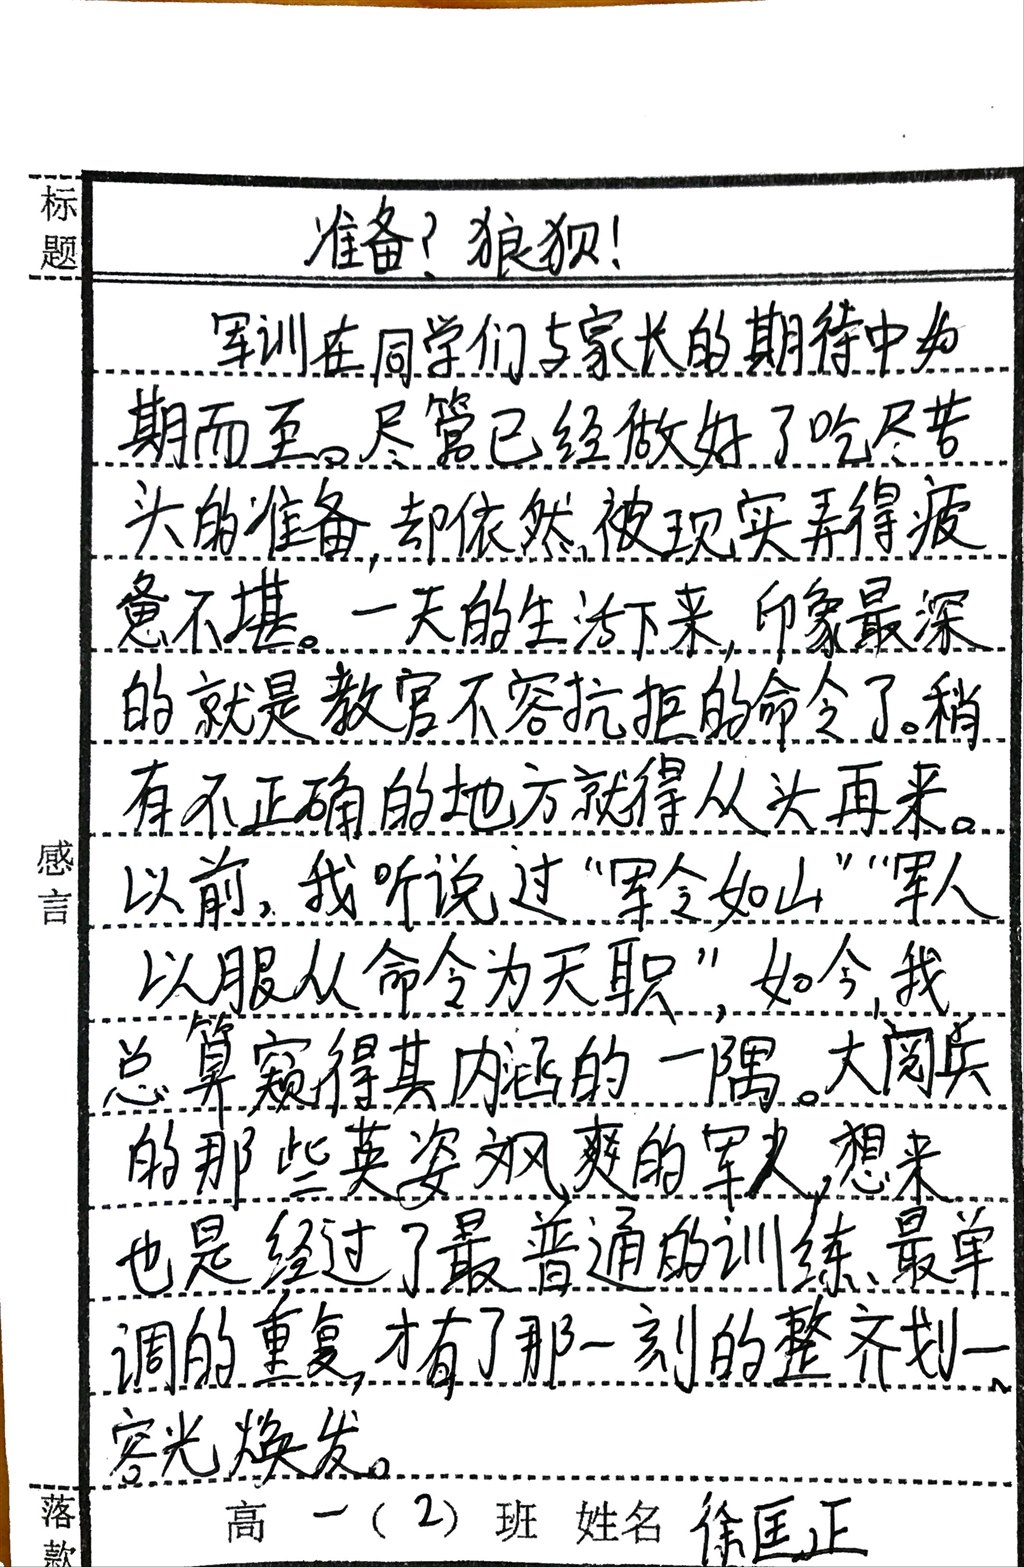 标题
准备？狼狈！
军训在同学们与家长的期待中如
期而至。尽管已经做好了吃尽苦
头的准备，却依然被现实弄得疲
惫不堪。一天的生活下来，印象最深
的就是教官不容抗拒的命令了。稍
有不正确的地方就得从头再来。
感言
以前，我听说过“军令如山”“军人
以服从命令为天职”，如今，我
总算窥得其内涵的一隅。大阅兵
的那些英姿飒爽的军人，想来
也是经过了最普通的训练、最单
调的重复，才有了那一刻的整齐划一、
容光焕发。
落款
高一（2）班 姓名 徐匡正